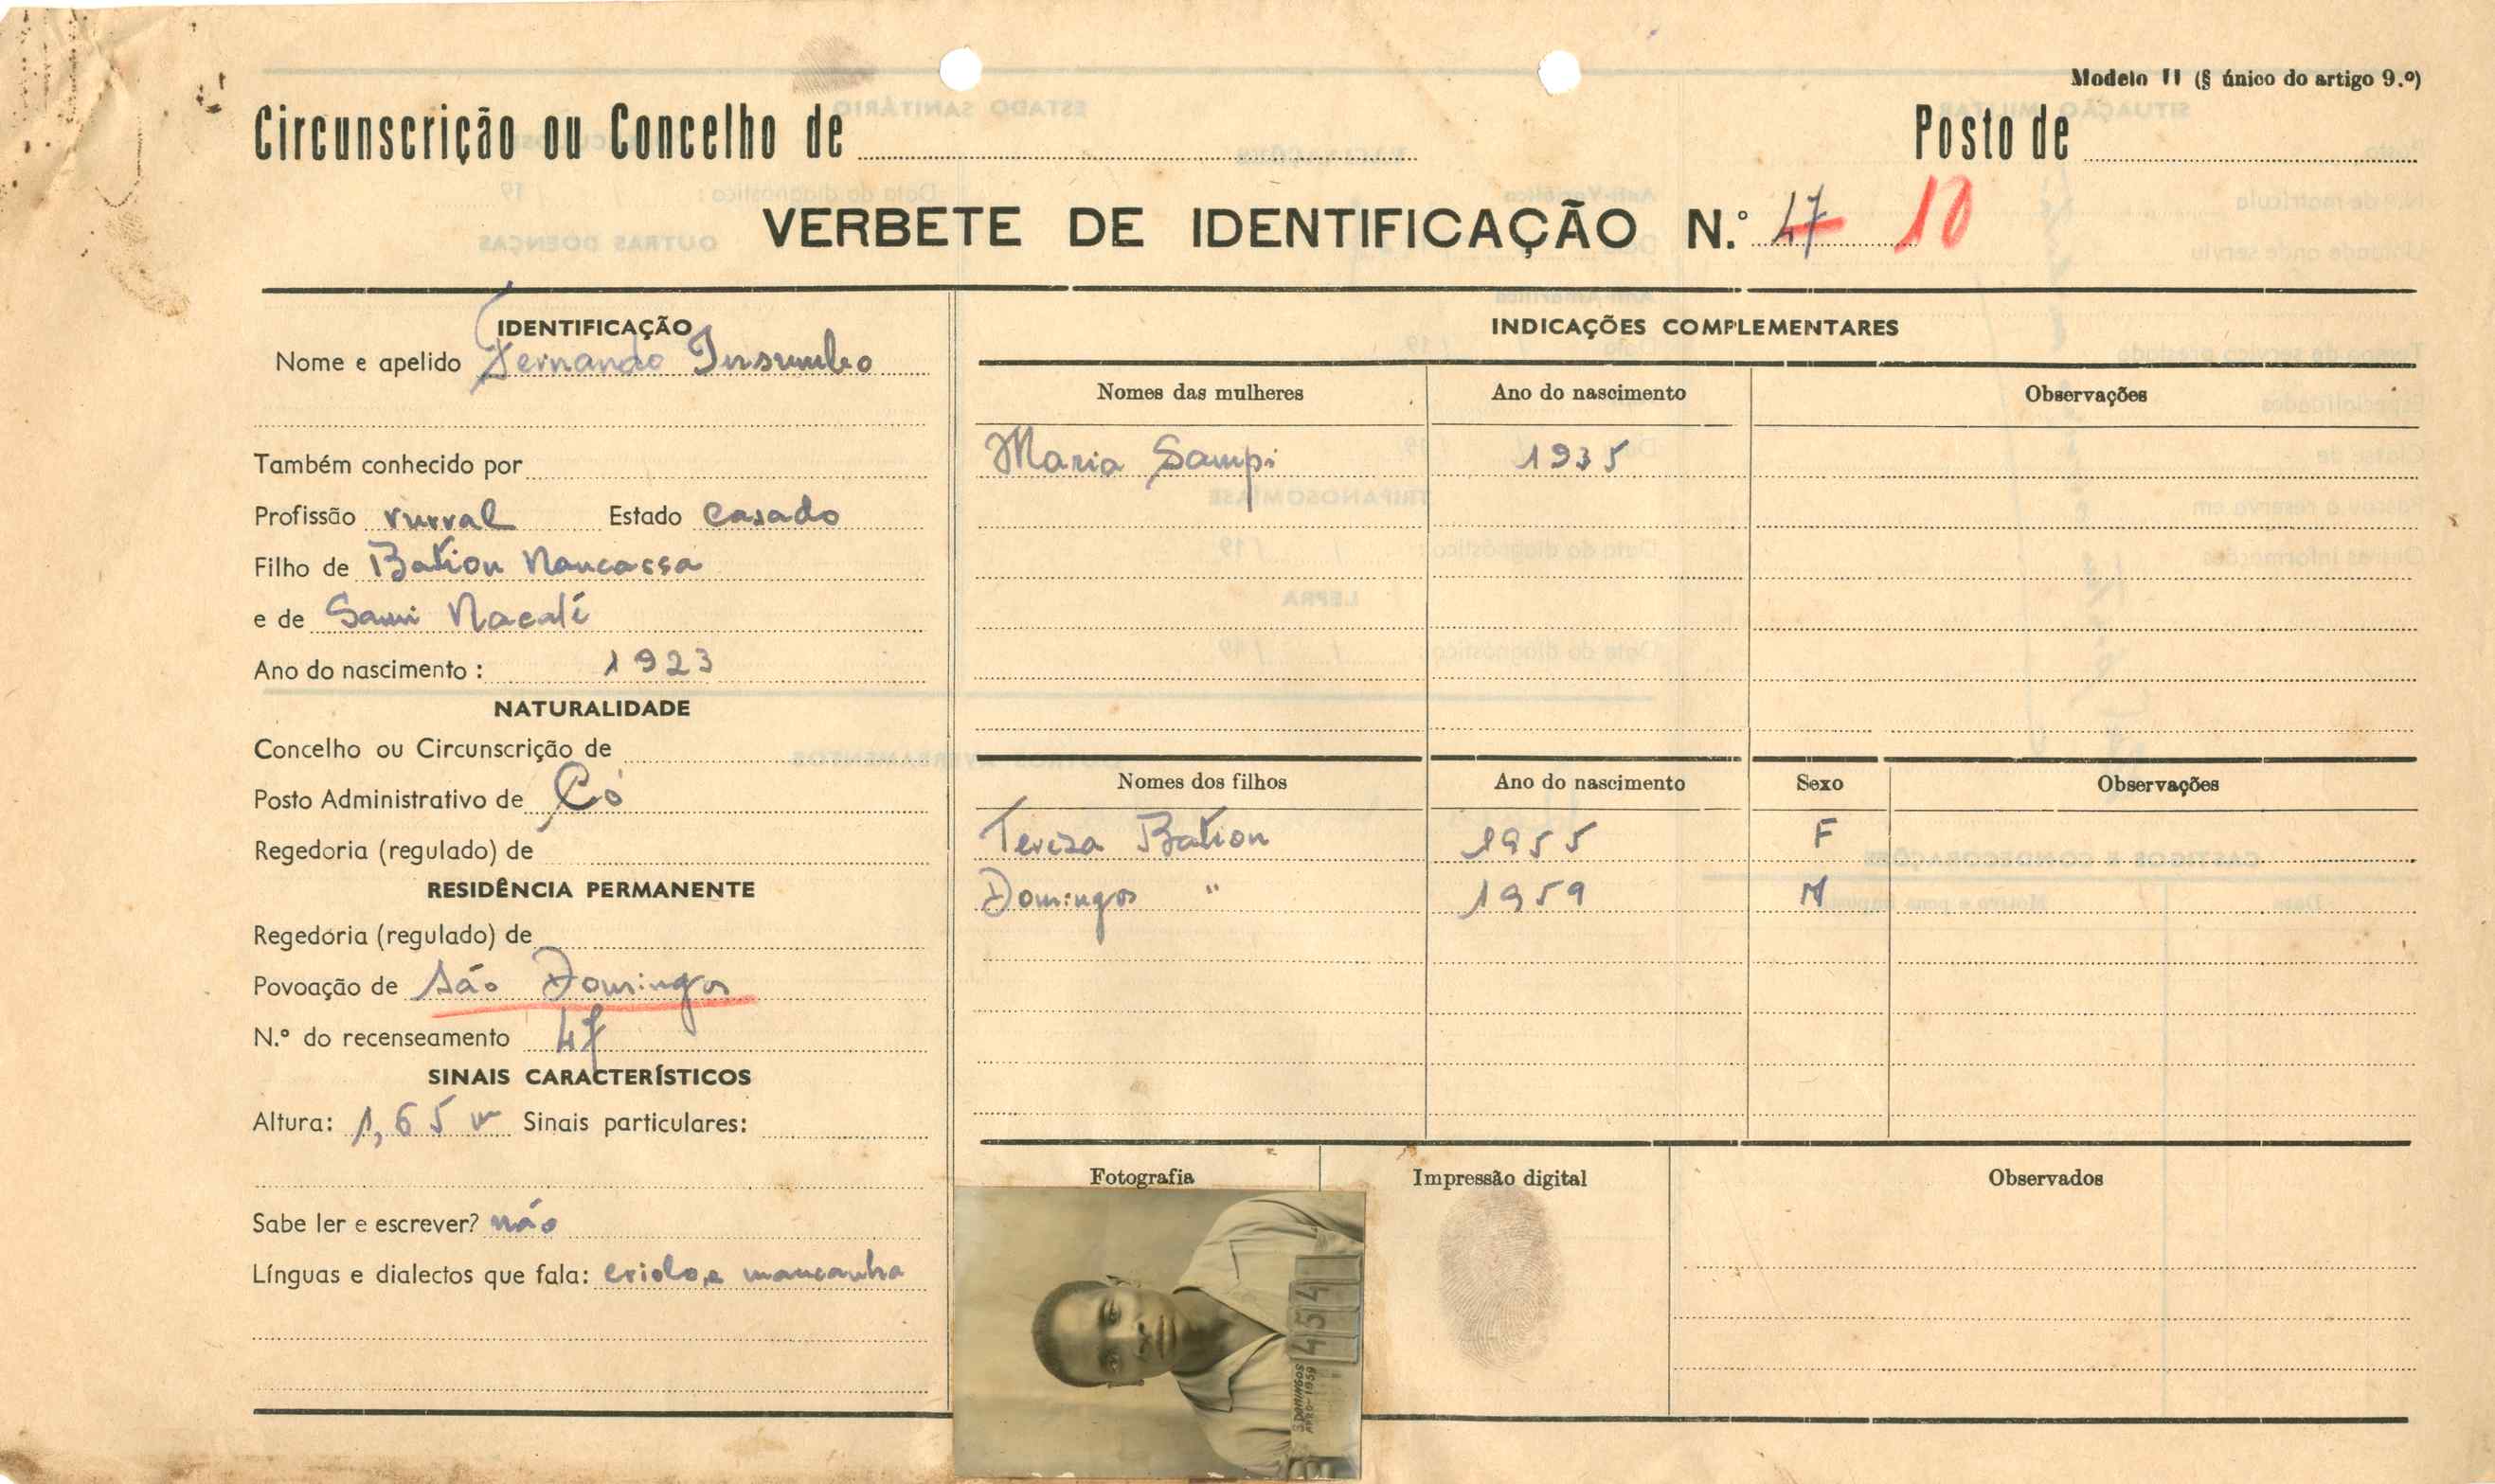 Modelo II (§ único do artigo 9.º)
Circunscrição ou Concelho de
Posto de
VERBETE DE IDENTIFICAÇÃO N.º 47 10
IDENTIFICAÇÃO
Nome e apelido Fernando Insumbo
Também conhecido por
Profissão rurral Estado casado
Filho de Bation Nancassa
e de Sami Nacalé
Ano do nascimento: 1923
NATURALIDADE
Concelho ou Circunscrição de
Posto Administrativo de Có
Regedoria (regulado) de
RESIDÊNCIA PERMANENTE
Regedoria (regulado) de
Povoação de São Domingos
N.º do recenseamento 47
SINAIS CARACTERÍSTICOS
Altura: 1,65 m Sinais particulares:
Sabe ler e escrever? não
Línguas e dialectos que fala: criolo e mancanha
INDICAÇÕES COMPLEMENTARES
Nomes das mulheres Ano do nascimento Observações
Maria Sampi 1935
Nomes dos filhos Ano do nascimento Sexo Observações
Tereza Bation 1955 F
Domingos " 1959 M
Fotografia Impressão digital Observados
S. DOMINGOS
1959
4541